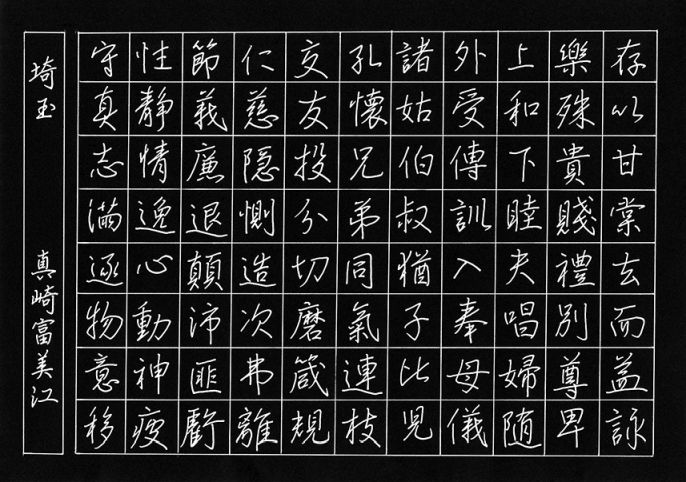 存以甘棠去而益詠
樂殊貴賤禮別尊卑
上和下睦夫唱婦随
外受傅訓入奉母儀
諸姑伯叔猶子比児
孔懐兄弟同氣連枝
交友投分切磨箴規
仁慈隠惻造次弗離
節義廉退顛沛匪虧
性静情逸心動神疲
守真志満逐物意移
埼玉 真崎富美江